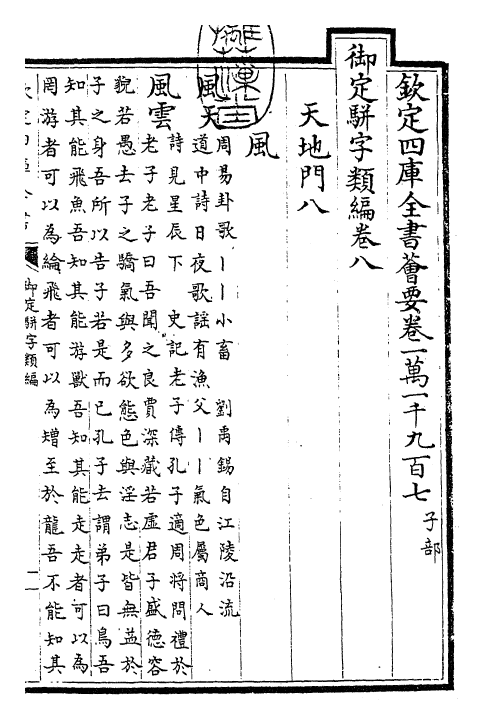 欽定四庫全書薈要卷一萬一千九百七 子部
御定駢字類編卷八
天地門八
風
風天 周易卦歌丨丨小畜 劉禹錫自江陵沿流
道中詩日夜歌謡有漁父丨丨氣色屬商人
風雲 詩見星辰下 史記老子傳孔子適周將問禮於
老子老子曰吾聞之良賈深藏若虛君子盛德容
貌若愚去子之驕氣與多欲態色與淫志是皆無益於
子之身吾所以告子若是而已孔子去謂弟子曰鳥吾
知其能飛魚吾知其能游獸吾知其能走走者可以為
罔游者可以為綸飛者可以為矰至於龍吾不能知其
御定駢字類編
一